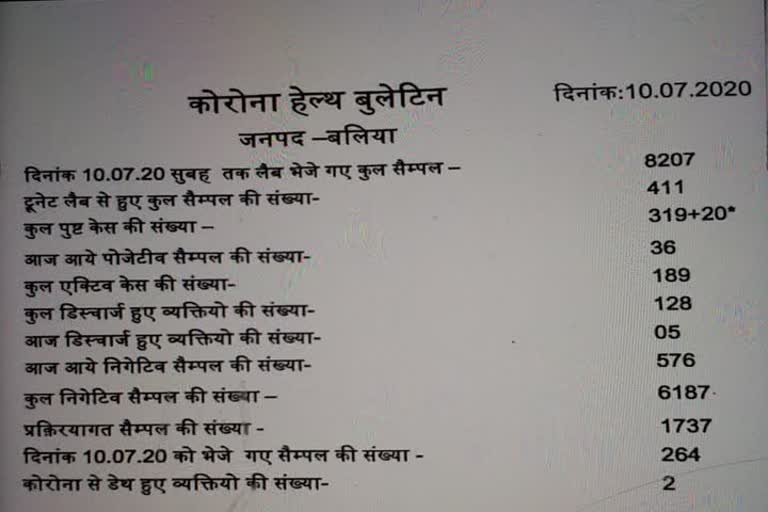 कोरोना हेल्थ बुलेटिन दिनांक:10.07.2020
जनपद –बलिया
दिनांक 10.07.20 सुबह तक लैब भेजे गए कुल सैम्पल – 8207
ट्रूनेट लैब से हुए कुल सैम्पल की संख्या- 411
कुल पुष्ट केस की संख्या – 319+20*
आज आये पोजेटीव सैम्पल की संख्या- 36
कुल एक्टिव केस की संख्या- 189
कुल डिस्चार्ज हुए व्यक्तियो की संख्या- 128
आज डिस्चार्ज हुए व्यक्तियो की संख्या- 05
आज आये निगेटिव सैम्पल की संख्या- 576
कुल निगेटिव सैम्पल की संख्या – 6187
प्रक्रियागत सैम्पल की संख्या - 1737
दिनांक 10.07.20 को भेजे गए सैम्पल की संख्या - 264
कोरोना से डेथ हुए व्यक्तियो की संख्या- 2